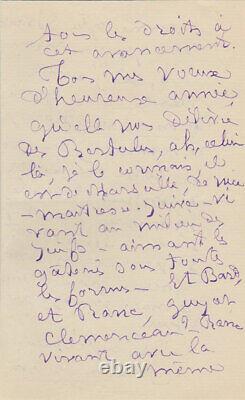 tous les droits à
cet avancement.
Tous mes vœux
d'heureuse année
qu'elle nous délivre
des Bertulus, ah, celui
là, je le connais, il
est de Marseille, de ma
vant au milieu de
Juifs - aimant les
sous toutes
les formes - Et Bard,
et Ranc, Guyot
Clemenceau - Ranc
vivant avec la
même
© ebay.com